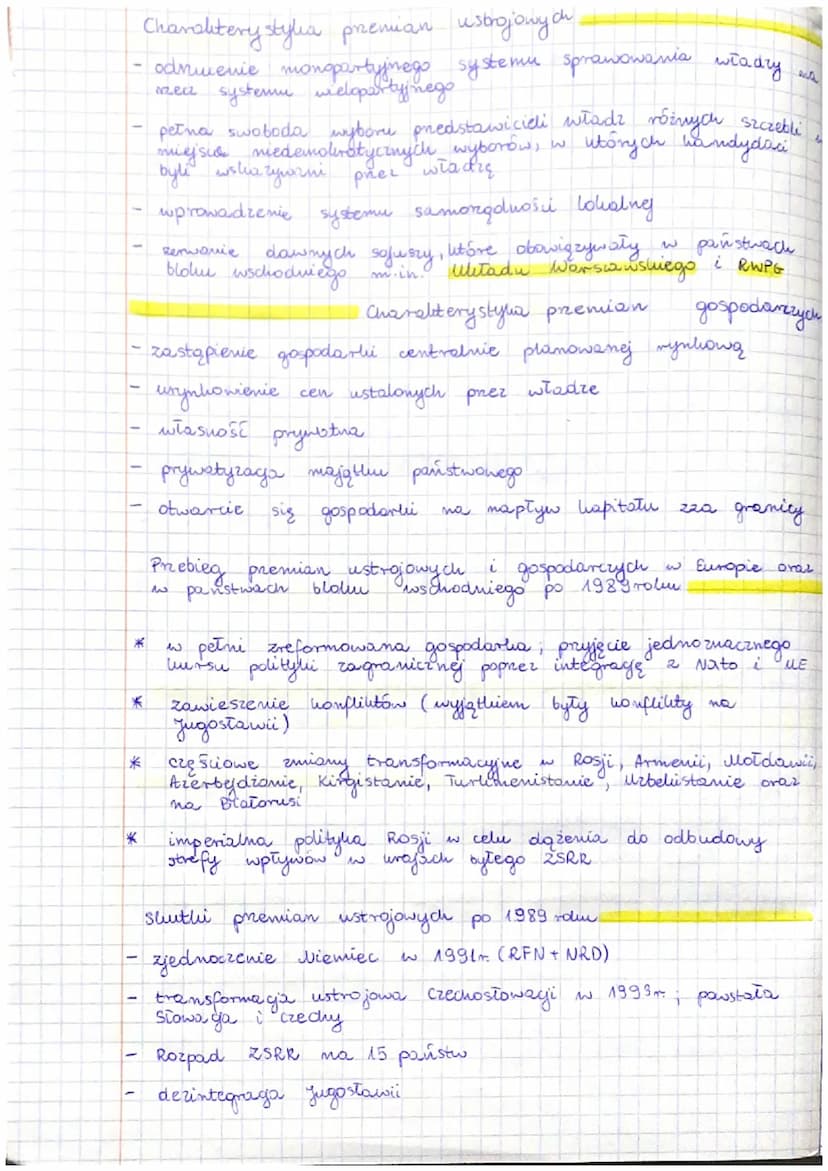 Charakterystyka przemian ustrojowych
- odmienienie monopartyjnego systemu sprawowania władzy na
rzecz systemu wielopartyjnego
- pełna swoboda wyboru przedstawicieli władz różnych szczebli w
miejsce niedemokratycznych wyborów, w których kandydaci
byli wskazywani przez władzę
- wprowadzenie systemu samorządności lokalnej
- zerwanie dawnych sojuszy, które obowiązywały w państwach
bloku wschodniego m.in. Układu Warszawskiego i RWPG
Charakterystyka przemian gospodarczych
- zastąpienie gospodarki centralnie planowanej rynkową
- urynkowienie cen ustalonych przez władze
- własność prywatna
- prywatyzacja majątku państwowego
- otwarcie się gospodarki na napływ kapitału zza granicy
Przebieg przemian ustrojowych i gospodarczych w Europie oraz
w państwach bloku wschodniego po 1989 roku
* w pełni zreformowana gospodarka; przyjęcie jednoznacznego
kursu polityki zagranicznej poprzez integrację z Nato i UE
* zawieszenie konfliktów (wyjątkiem były konflikty na
Jugosławii)
* częściowe zmiany transformacyjne w Rosji, Armenii, Mołdawii,
Azerbejdżanie, Kirgistanie, Turkmenistanie, Uzbekistanie oraz
na Białorusi
* imperialna polityka Rosji w celu dążenia do odbudowy
strefy wpływów w krajach byłego ZSRR
Skutki przemian ustrojowych po 1989 roku
- zjednoczenie Niemiec w 1991r. (RFN + NRD)
- transformacja ustrojowa Czechosłowacji w 1993r; powstała
Słowacja i Czechy
- Rozpad ZSRR na 15 państw
- dezintegracja Jugosławii